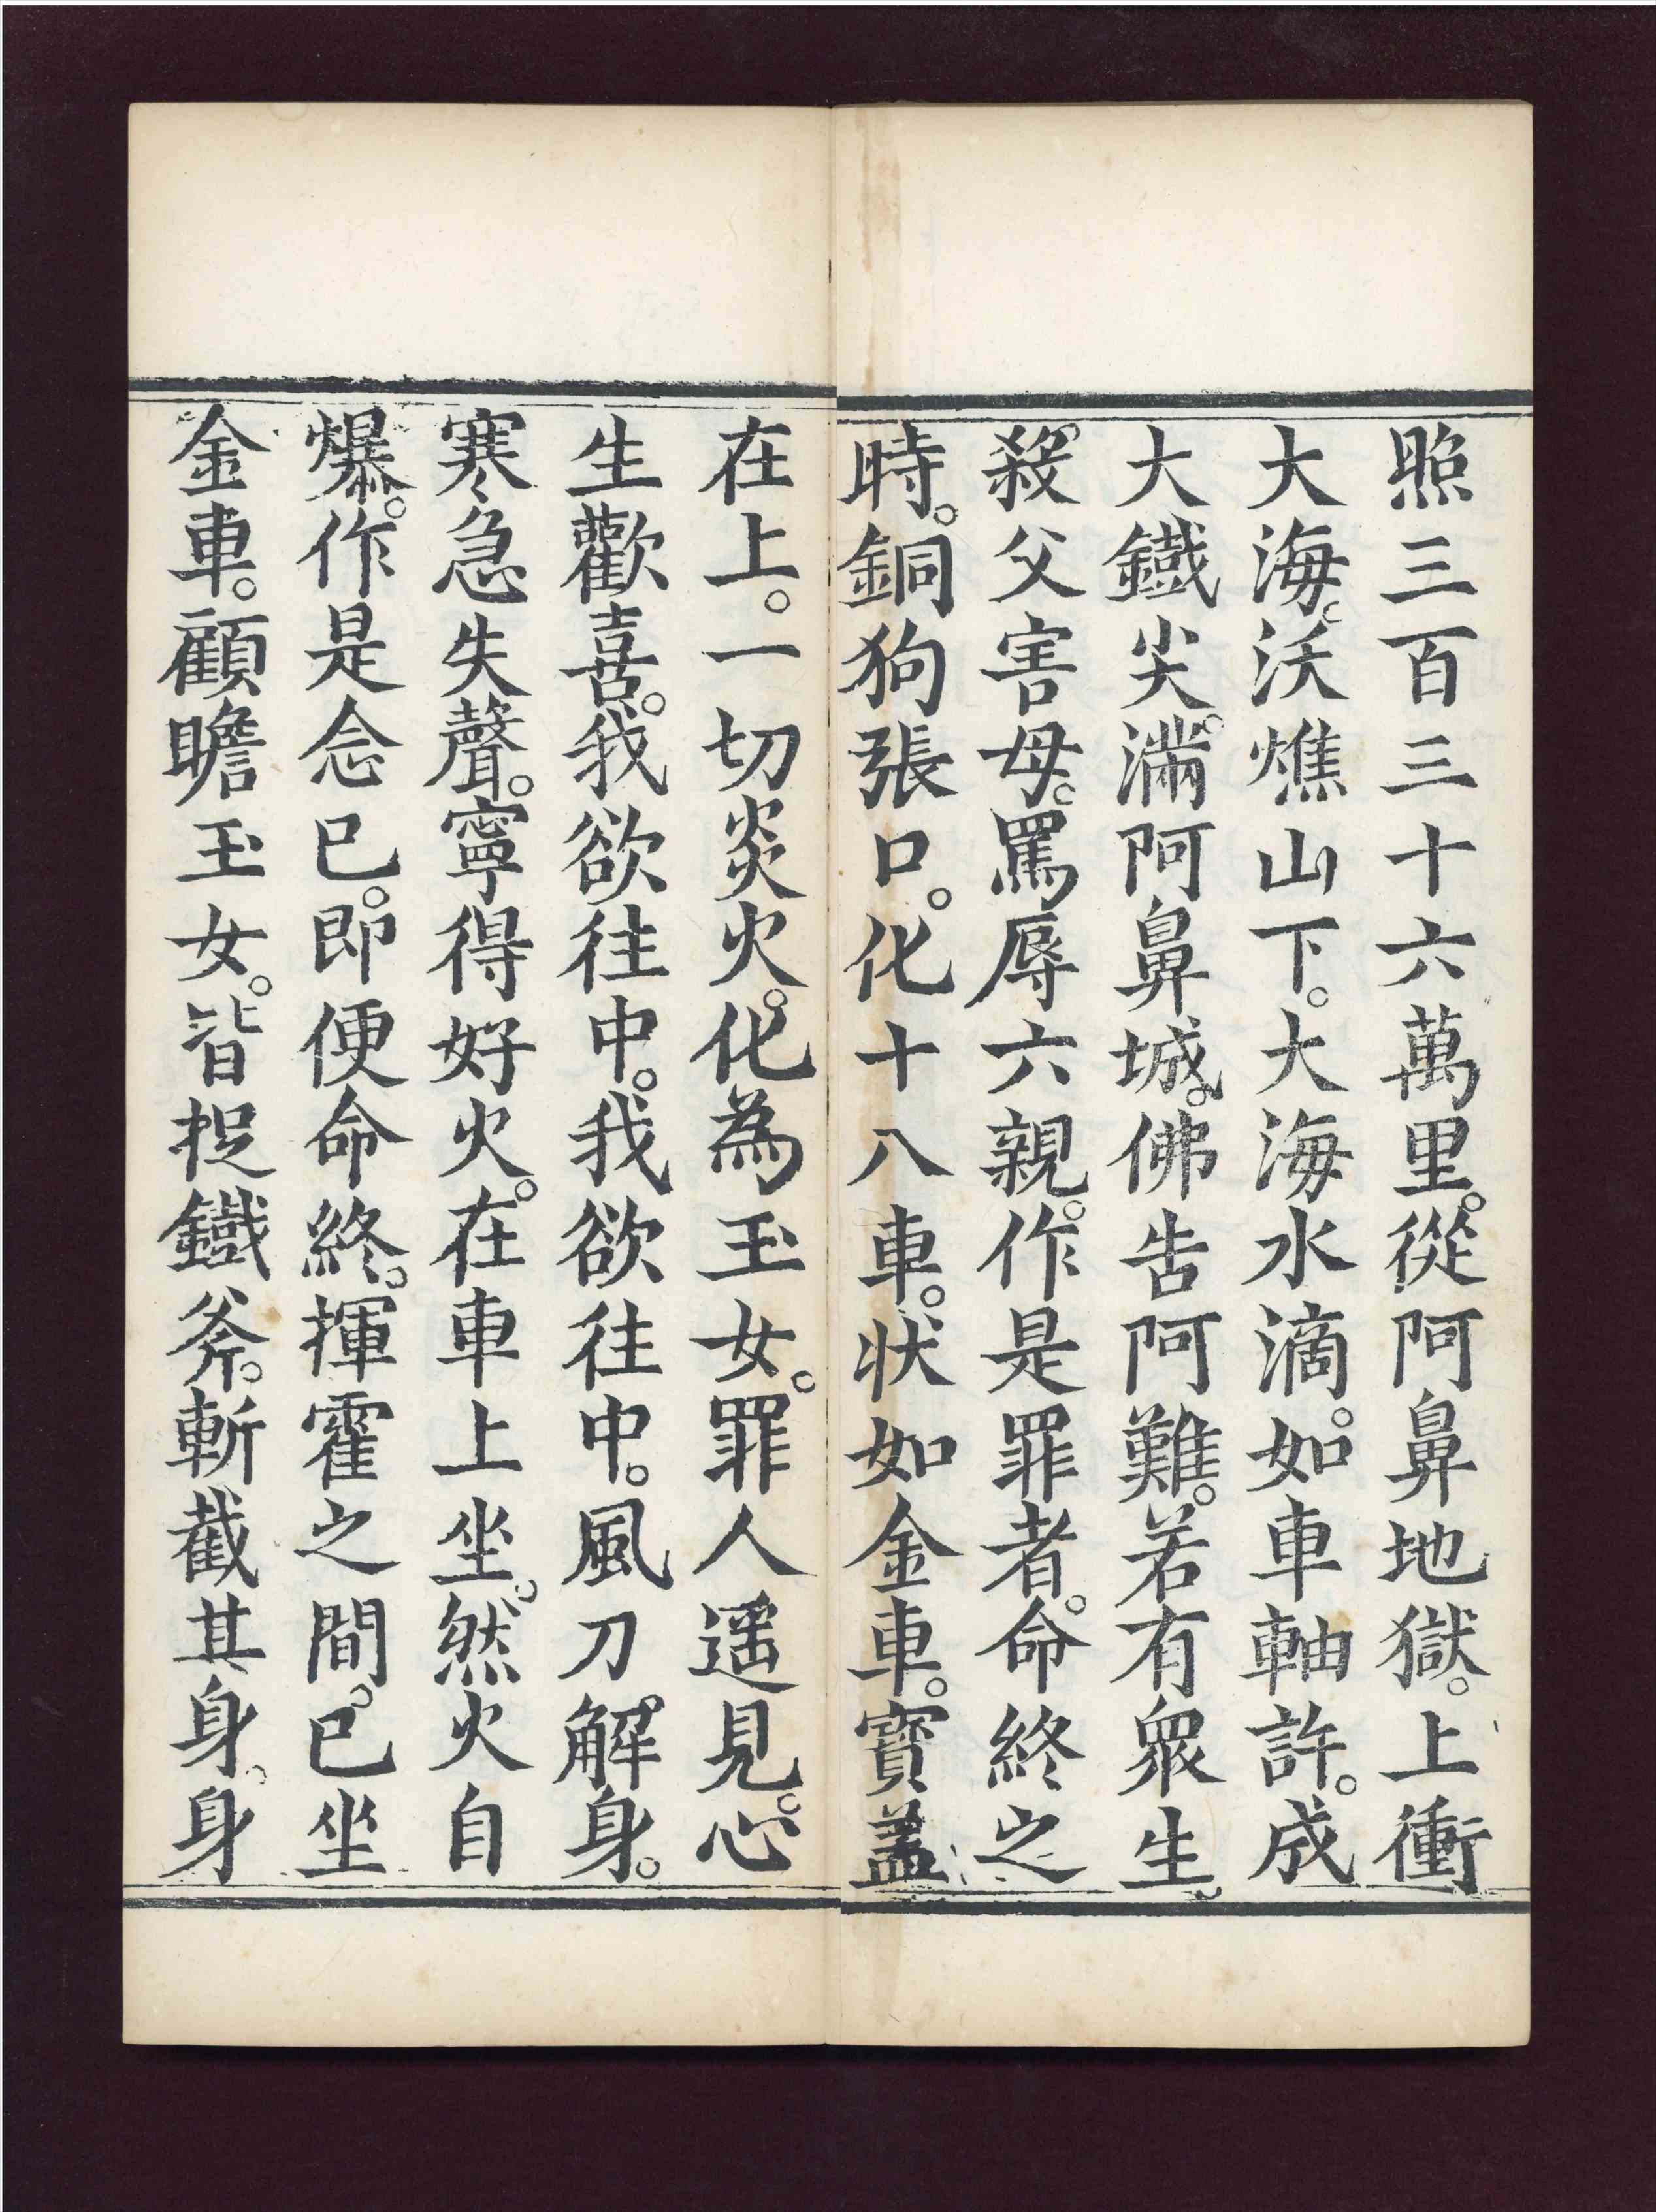 照三百三十六萬里。從阿鼻地獄。上衝
大海。沃燋山下。大海水滴。如車軸許。成
大鐵尖。滿阿鼻城。佛告阿難。若有眾生。
殺父害母。罵辱六親。作是罪者。命終之
時。銅狗張口。化十八車。状如金車。寳盖
在上。一切炎火。化為玉女。罪人遥見。心
生歡喜。我欲往中。我欲往中。風刀解身。
寒急失聲。寧得好火。在車上坐。然火自
爆。作是念已。即便命終。揮霍之間。已坐
金車。顧瞻玉女。皆捉鐵斧。斬截其身。身